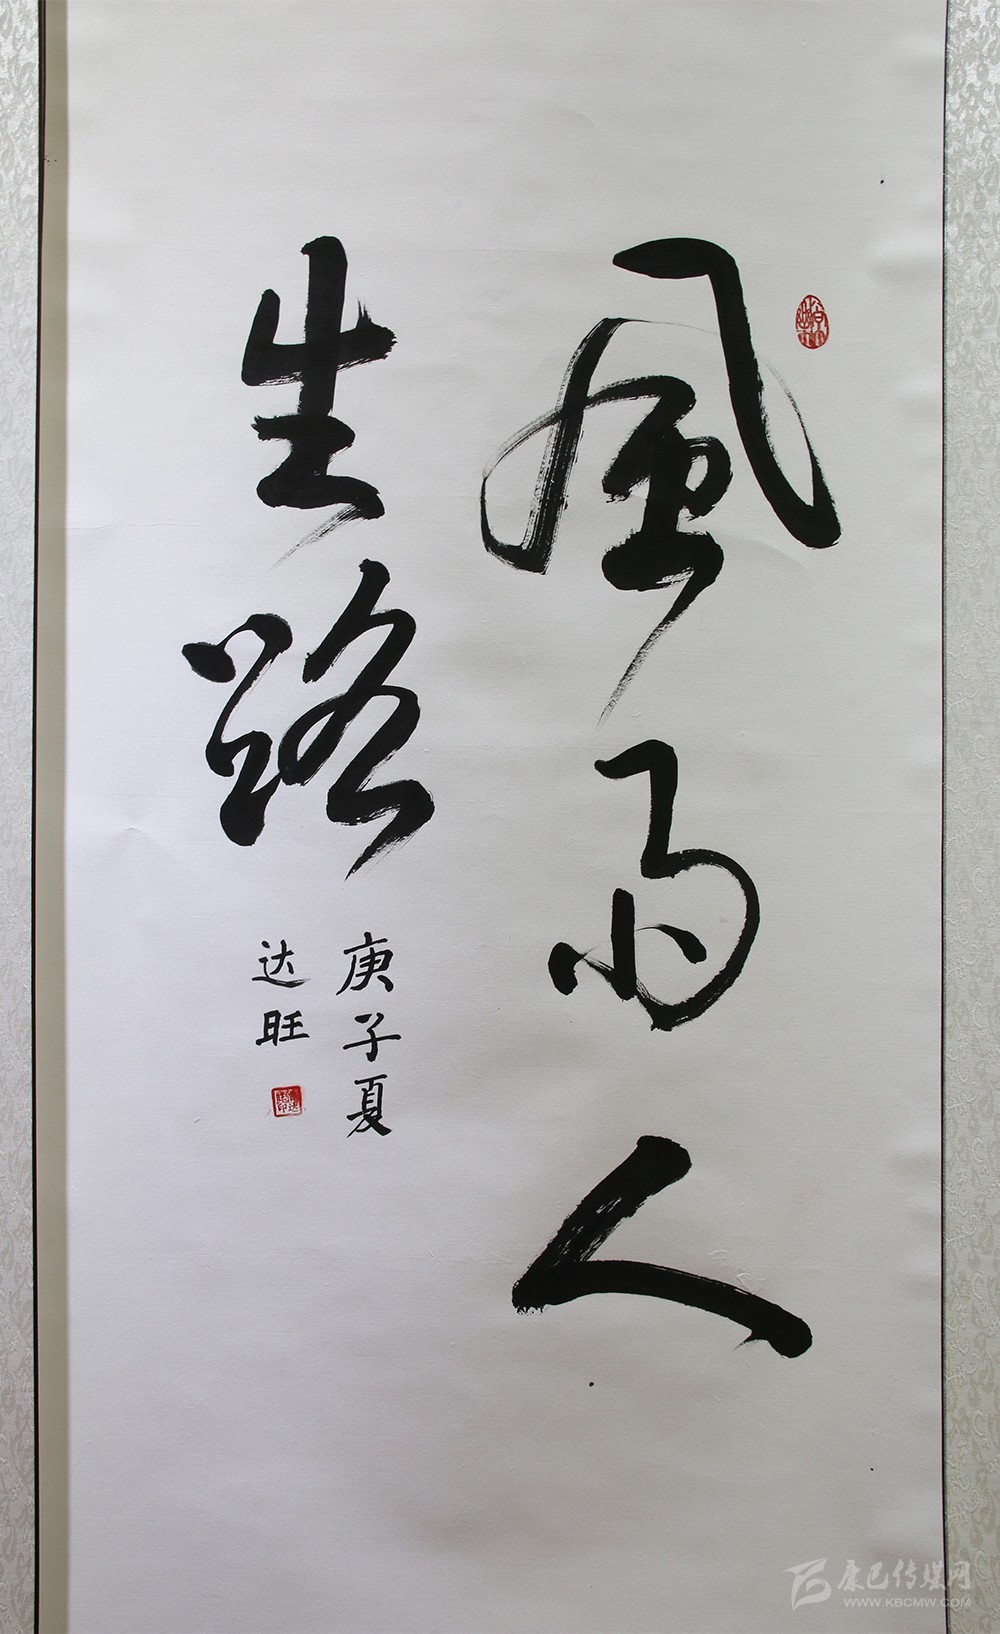 風雨人
生路
庚子夏
达旺
康巴传媒网
WWW.KBCMW.COM